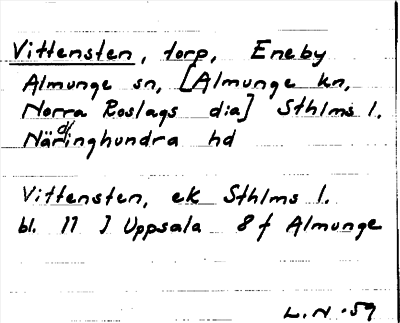 Vittensten, torp, Eneby
Almunge sn, [Almunge kn,
Norra Roslags dia] Sthlms l.
Närdinghundra hd
Vittensten, ek Sthlms l.
bl. 11 J Uppsala 8 f Almunge
L.N.-59